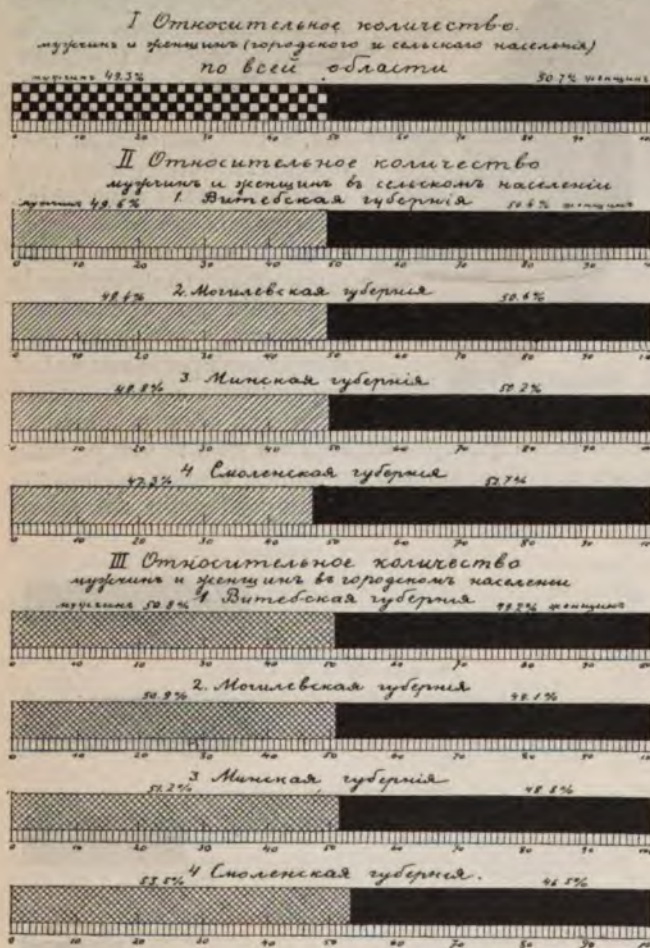 I Относительное количество.
мужчинъ и женщинъ (городского и сельскаго населенія)
по всей области
мужчинъ 49.3% 50.7% женщинъ
0 10 20 30 40 50 60 70 80 90 100
II Относительное количество
мужчинъ и женщинъ въ сельскомъ населеніи
1. Витебская губернія
мужчинъ 49.6% 50.6% женщинъ
0 10 20 30 40 50 60 70 80 90 100
2. Могилевская губернія
49.4% 50.6%
0 10 20 30 40 50 60 70 80 90 100
3 Минская губернія
49.8% 50.2%
0 10 20 30 40 50 60 70 80 90 100
4 Смоленская губернія
47.3% 52.7%
0 10 20 30 40 50 60 70 80 90 100
III Относительное количество
мужчинъ и женщинъ въ городскомъ населении
1 Витебская губернія
мужчинъ 50.8% 49.2% женщинъ
0 10 20 30 40 50 60 70 80 90 100
2. Могилевская губернія
50.9% 49.1%
0 10 20 30 40 50 60 70 80 90 100
3 Минская губернія
51.2% 48.8%
0 10 20 30 40 50 60 70 80 90 100
4 Смоленская губернія.
53.5% 46.5%
0 10 20 30 40 50 60 70 80 90 100